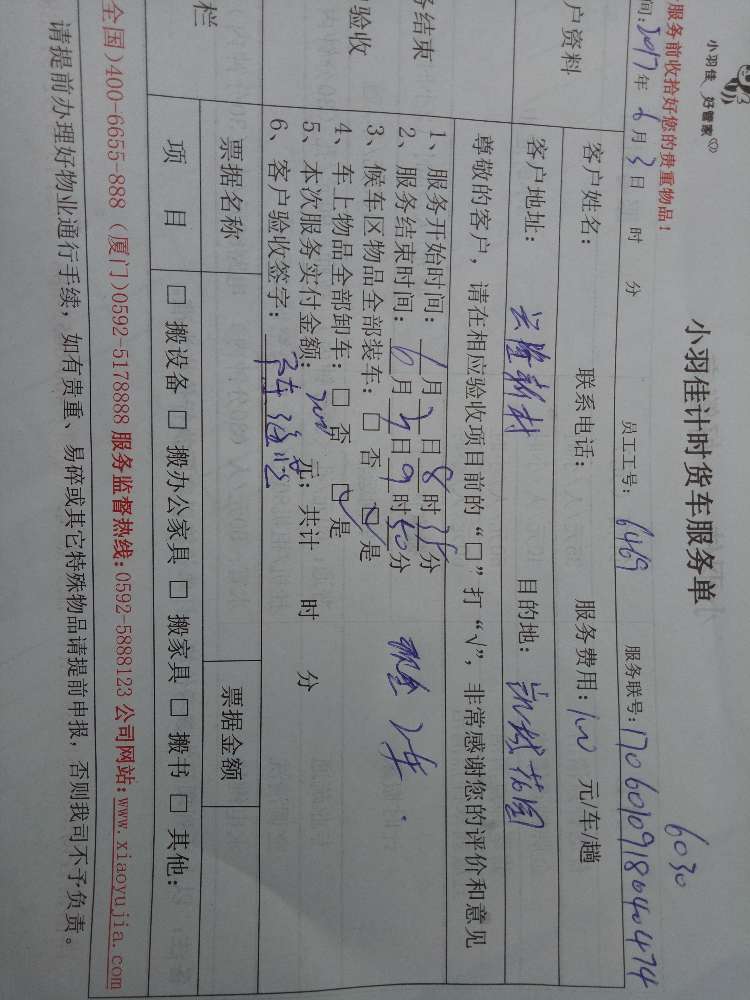 小羽佳 好管家
服务前收拾好您的贵重物品！
小羽佳计时货车服务单
6030
间：2017年6月3日 时 分 员工工号：6469 服务联号：1706010918040474
户资料
客户姓名： 联系电话： 服务费用：100 元/车/趟
客户地址：兴隆新村 目的地：
尊敬的客户，请在相应验收项目前的“□”打“√”，非常感谢您的评价和意见
务结束
验收
1、服务开始时间：6月3日8时35分
2、服务结束时间：6月3日9时50分
3、候车区物品全部装车：□否 ☑是
4、车上物品全部卸车：□否 ☑是
2车
5、本次服务实付金额：200元；共计 时 分
6、客户验收签字：
票据名称 票据金额
栏
项 目 □搬设备 □搬办公家具 □搬家具 □搬书 □其他：
全国)400-6655-888 (厦门)0592-5178888 服务监督热线:0592-5888123 公司网站:www.xiaoyujia.com
请提前办理好物业通行手续，如有贵重、易碎或其它特殊物品请提前申报，否则我司不予负责。